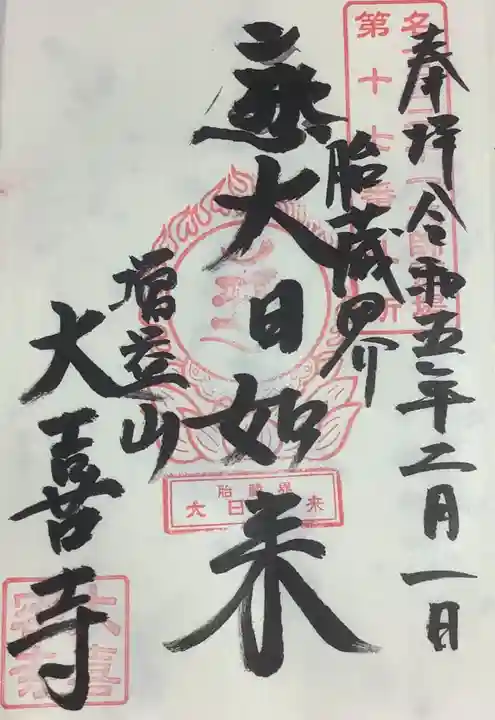 奉拝 令和五年二月一日
第十七番
胎蔵界
大日如来
増益山
大喜寺
胎蔵界
大日如来
大喜寺